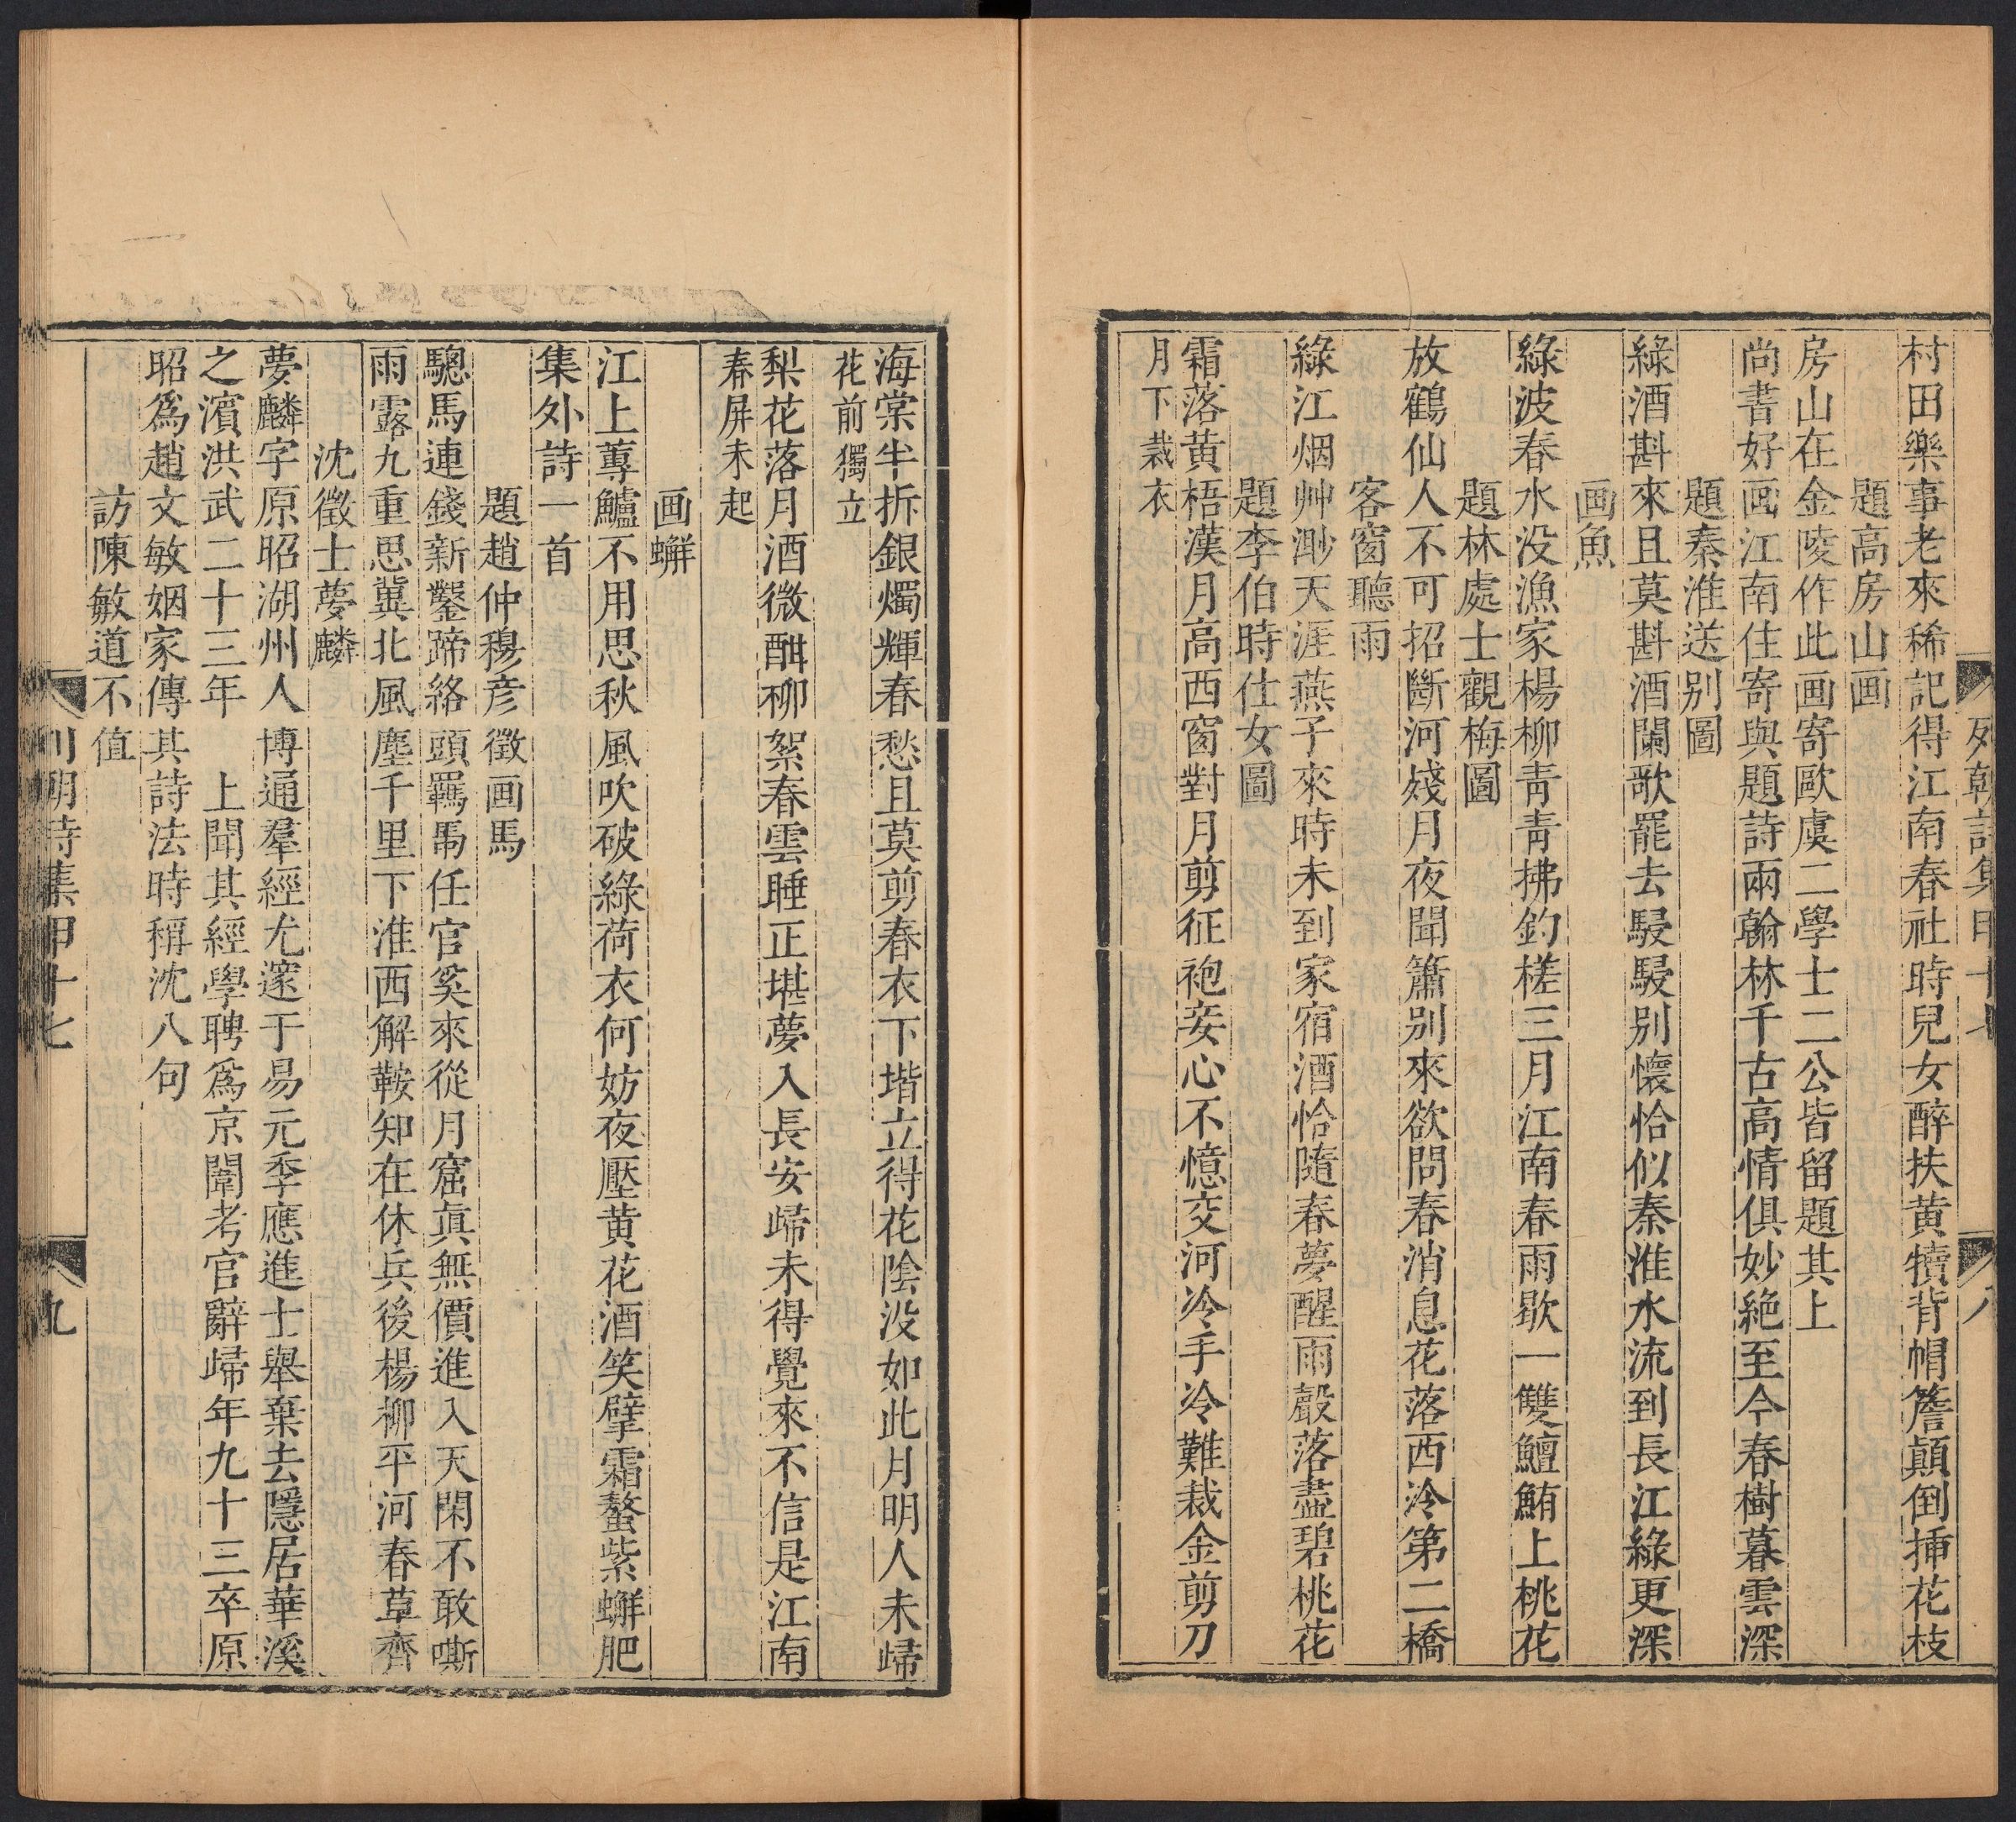 列朝詩集甲十七
八
村田樂事老來稀記得江南春社時兒女醉扶黄犢背帽簷顛倒揷花枝
題高房山画
房山在金陵作此画寄歐虞二學士二公皆留題其上
尚書好画江南住寄與題詩兩翰林千古高情俱妙絶至今春樹暮雲深
題秦淮送别圖
綠酒斟來且莫斟酒闌歌罷去駸駸别懷恰似秦淮水流到長江綠更深
画魚
綠波春水没漁家楊柳靑靑拂釣槎三月江南春雨歇一雙鱣鮪上桃花
題林處士觀梅圖
放鶴仙人不可招斷河殘月夜聞簫别來欲問春消息花落西泠第二橋
客窗聽雨
綠江烟艸渺天涯燕子來時未到家宿酒恰隨春夢醒雨聲落盡碧桃花
題李伯時仕女圖
霜落黄梧漢月高西窗對月剪征袍妾心不憶交河冷手冷難裁金剪刀
月下裁衣
海棠半拆銀燭輝春愁且莫剪春衣下堦立得花陰没如此月明人未歸
花前獨立
梨花落月酒微酣柳絮春雲睡正堪夢入長安歸未得覺來不信是江南
春屏未起
画蠏
江上蓴鱸不用思秋風吹破綠荷衣何妨夜壓黄花酒笑擘霜螯紫蠏肥
集外詩一首
題趙仲穆彦徵画馬
驄馬連錢新鑿蹄絡頭羈馽任官奚來從月窟眞無價進入天閑不敢嘶
雨露九重思冀北風塵千里下淮西解鞍知在休兵後楊柳平河春草齊
沈徵士夢麟
夢麟字原昭湖州人博通羣經尤邃于易元季應進士舉棄去隱居華溪
之濱洪武二十三年 上聞其經學聘爲京闈考官辭歸年九十三卒原
昭爲趙文敏姻家傳其詩法時稱沈八句
訪陳敏道不值
列朝詩集甲十七
九